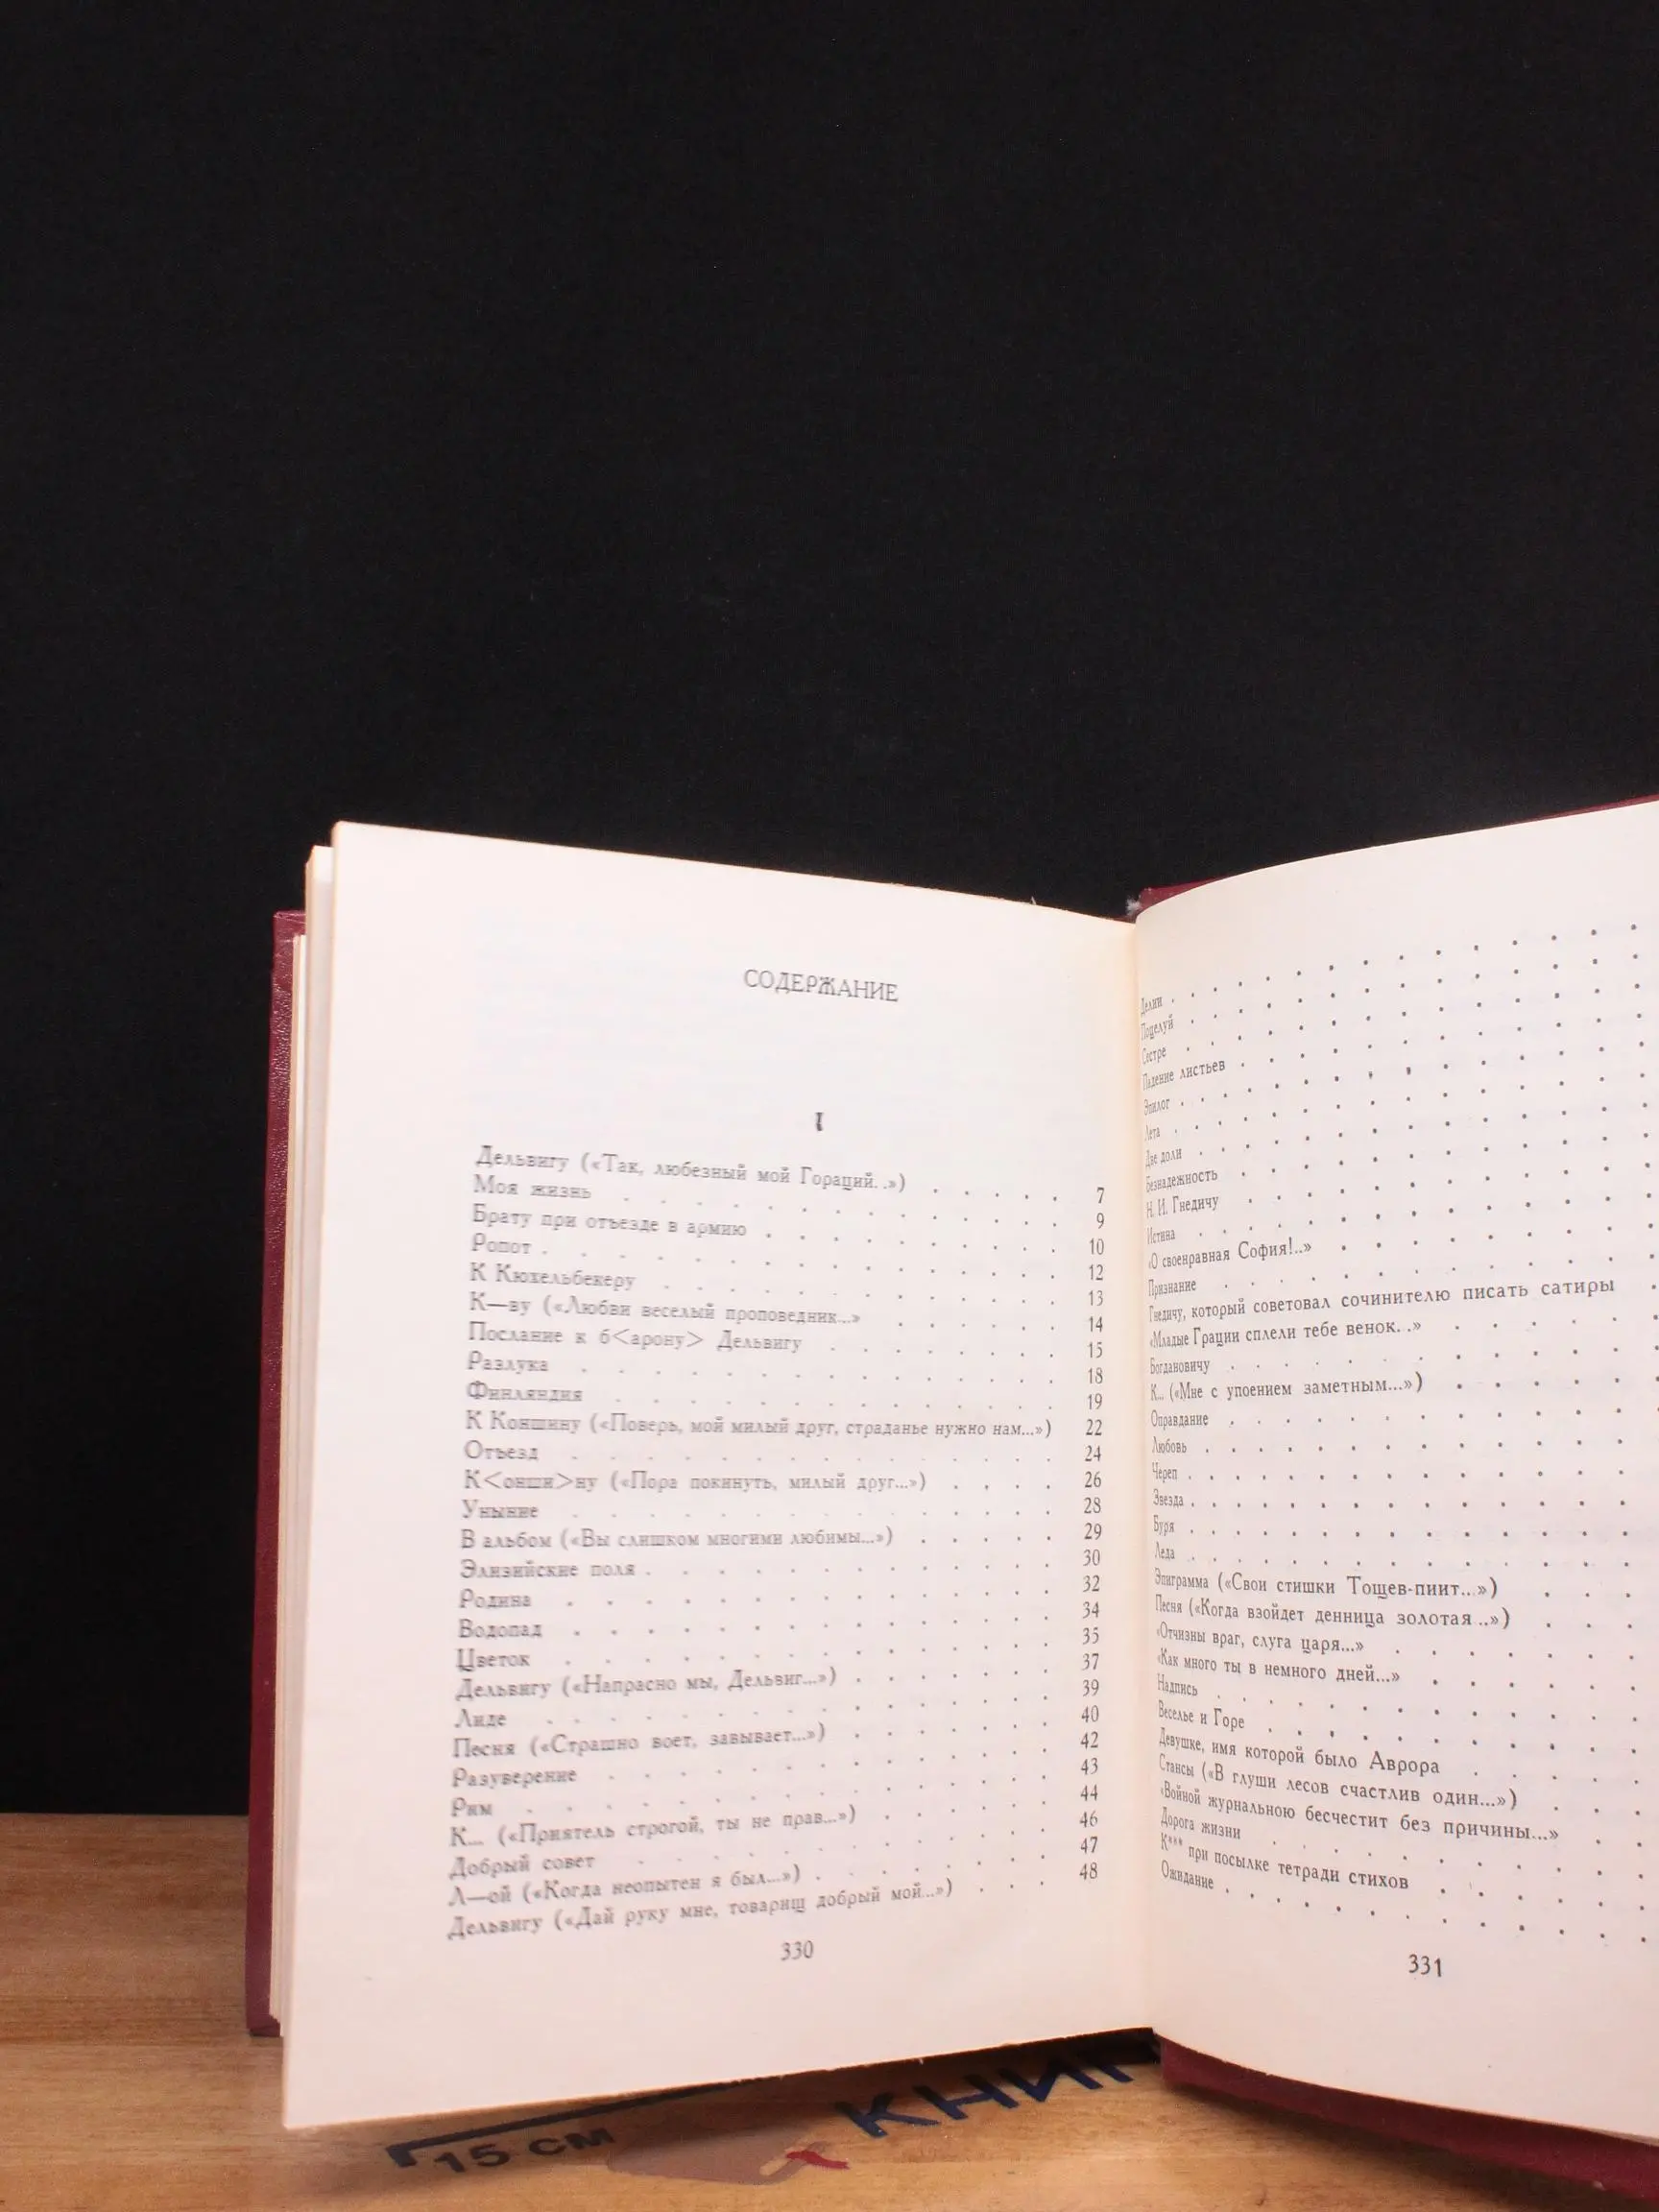 СОДЕРЖАНИЕ
I
Дельвигу («Так, любезный мой Гораций..») . . . . 7
Моя жизнь . . . . . . . . . . . 9
Брату при отъезде в армию . . . . . . . . 10
Ропот . . . . . . . . . . . . 12
К Кюхельбекеру . . . . . . . . . . 13
К—ву («Любви веселый проповедник...» . . . . . 14
Послание к б<арону> Дельвигу . . . . . . . 15
Разлука . . . . . . . . . . . . 18
Финляндия . . . . . . . . . . . 19
К Коншину («Поверь, мой милый друг, страданье нужно нам...») 22
Отъезд . . . . . . . . . . . . 24
К<онши>ну («Пора покинуть, милый друг...») . . . . 26
Уныние . . . . . . . . . . . . 28
В альбом («Вы слишком многими любимы...») . . . . . 29
Элизийские поля . . . . . . . . . . . 30
Родина . . . . . . . . . . . . 32
Водопад . . . . . . . . . . . . 34
Цветок . . . . . . . . . . . . 35
Дельвигу («Напрасно мы, Дельвиг...») . . . . . . 37
Лиде . . . . . . . . . . . . . 39
Песня («Страшно воет, завывает...») . . . . . . 40
Разуверение . . . . . . . . . . . 42
Рим . . . . . . . . . . . . . 43
К... («Приятель строгой, ты не прав...») . . . . . 44
Добрый совет . . . . . . . . . . . 46
Л—ой («Когда неопытен я был...») . . . . . . . 47
Дельвигу («Дай руку мне, товарищ добрый мой...») . . . 48
330
Делии . . . . . . . . . . . .
Поцелуй . . . . . . . . . . . .
Сестре . . . . . . . . . . . .
Падение листьев . . . . . . . . . .
Эпилог . . . . . . . . . . . .
Лета . . . . . . . . . . . . .
Две доли . . . . . . . . . . . .
Безнадежность . . . . . . . . . .
Н. И. Гнедичу . . . . . . . . . .
Истина . . . . . . . . . . . .
«О своенравная София!..» . . . . . . . .
Признание . . . . . . . . . . .
Гнедичу, который советовал сочинителю писать сатиры .
«Младые Грации сплели тебе венок. .» . . . . .
Богдановичу . . . . . . . . . . .
К... («Мне с упоением заметным...») . . . . .
Оправдание . . . . . . . . . . .
Любовь . . . . . . . . . . . .
Череп . . . . . . . . . . . . .
Звезда . . . . . . . . . . . . .
Буря . . . . . . . . . . . . .
Леда . . . . . . . . . . . . .
Эпиграмма («Свои стишки Тощев-пиит...») . . .
Песня («Когда взойдет денница золотая...») . . .
«Отчизны враг, слуга царя...» . . . . . . .
«Как много ты в немного дней...» . . . . . .
Надпись . . . . . . . . . . . .
Веселье и Горе . . . . . . . . . .
Девушке, имя которой было Аврора . . . . .
Стансы («В глуши лесов счастлив один...») . . .
«Войной журнальною бесчестит без причины...» . .
Дорога жизни . . . . . . . . . .
К*** при посылке тетради стихов . . . . . .
Ожидание . . . . . . . . . . . .
331
15 СМ